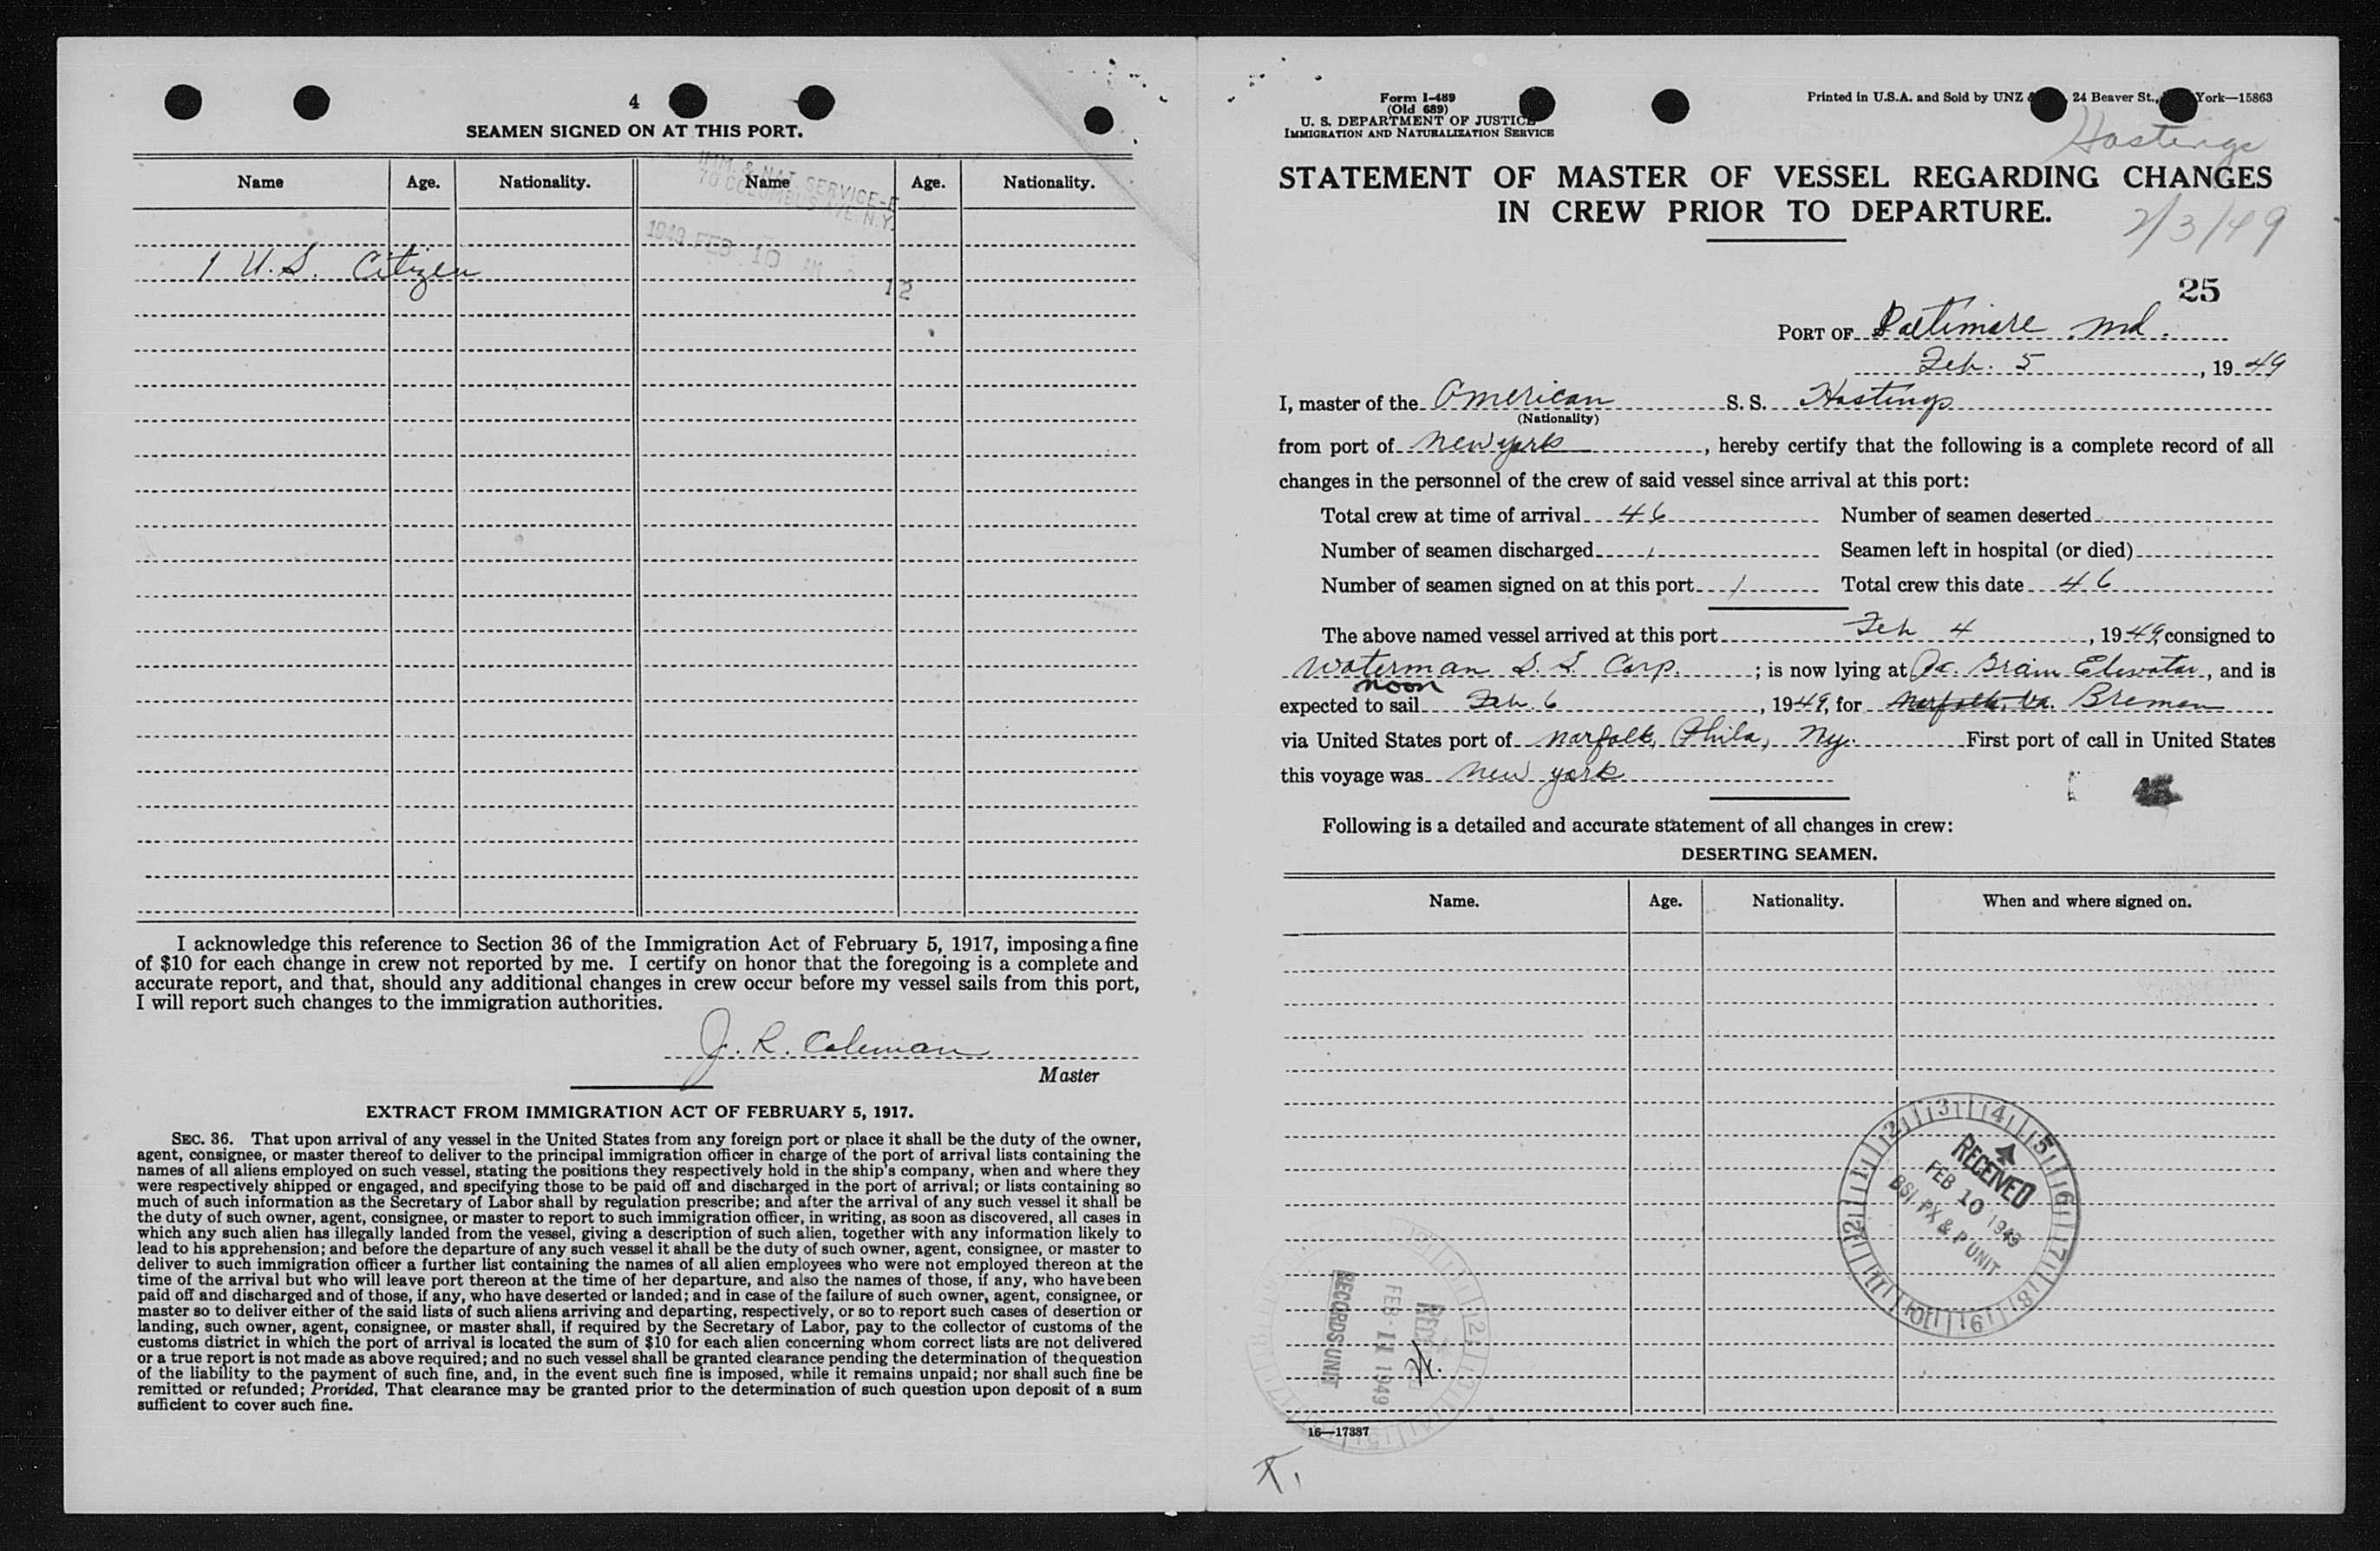 4
SEAMEN SIGNED ON AT THIS PORT.
Name Age. Nationality. Name Age. Nationality.
IMM. & NAT. SERVICE-E
70 COLUMBUS AVE N.Y.
1949 FEB 10 AM
12
1 U.S. Citizen
I acknowledge this reference to Section 36 of the Immigration Act of February 5, 1917, imposing a fine
of $10 for each change in crew not reported by me. I certify on honor that the foregoing is a complete and
accurate report, and that, should any additional changes in crew occur before my vessel sails from this port,
I will report such changes to the immigration authorities.
J. R. Coleman
Master
EXTRACT FROM IMMIGRATION ACT OF FEBRUARY 5, 1917.
SEC. 36. That upon arrival of any vessel in the United States from any foreign port or place it shall be the duty of the owner,
agent, consignee, or master thereof to deliver to the principal immigration officer in charge of the port of arrival lists containing the
names of all aliens employed on such vessel, stating the positions they respectively hold in the ship's company, when and where they
were respectively shipped or engaged, and specifying those to be paid off and discharged in the port of arrival; or lists containing so
much of such information as the Secretary of Labor shall by regulation prescribe; and after the arrival of any such vessel it shall be
the duty of such owner, agent, consignee, or master to report to such immigration officer, in writing, as soon as discovered, all cases in
which any such alien has illegally landed from the vessel, giving a description of such alien, together with any information likely to
lead to his apprehension; and before the departure of any such vessel it shall be the duty of such owner, agent, consignee, or master to
deliver to such immigration officer a further list containing the names of all alien employees who were not employed thereon at the
time of the arrival but who will leave port thereon at the time of her departure, and also the names of those, if any, who have been
paid off and discharged and of those, if any, who have deserted or landed; and in case of the failure of such owner, agent, consignee, or
master so to deliver either of the said lists of such aliens arriving and departing, respectively, or so to report such cases of desertion or
landing, such owner, agent, consignee, or master shall, if required by the Secretary of Labor, pay to the collector of customs of the
customs district in which the port of arrival is located the sum of $10 for each alien concerning whom correct lists are not delivered
or a true report is not made as above required; and no such vessel shall be granted clearance pending the determination of the question
of the liability to the payment of such fine, and, in the event such fine is imposed, while it remains unpaid; nor shall such fine be
remitted or refunded; Provided, That clearance may be granted prior to the determination of such question upon deposit of a sum
sufficient to cover such fine.
Form I-489
(Old 689)
U. S. DEPARTMENT OF JUSTICE
IMMIGRATION AND NATURALIZATION SERVICE
Printed in U.S.A. and Sold by UNZ & 24 Beaver St., York—15863
Hastings
STATEMENT OF MASTER OF VESSEL REGARDING CHANGES
IN CREW PRIOR TO DEPARTURE.
2/3/49
25
PORT OF Baltimore Md.
Feb. 5, 1949
I, master of the American S. S. Hastings
(Nationality)
from port of New York, hereby certify that the following is a complete record of all
changes in the personnel of the crew of said vessel since arrival at this port:
Total crew at time of arrival 46 Number of seamen deserted
Number of seamen discharged 1 Seamen left in hospital (or died)
Number of seamen signed on at this port 1 Total crew this date 46
The above named vessel arrived at this port Feb 4, 1949, consigned to
Waterman S. S. Corp.; is now lying at Pc. Grain Elevator, and is
noon
expected to sail Feb. 6, 1949, for Norfolk, Va. Bremen
via United States port of Norfolk, Phila, Ny. First port of call in United States
this voyage was New York
Following is a detailed and accurate statement of all changes in crew:
DESERTING SEAMEN.
Name. Age. Nationality. When and where signed on.
RECEIVED
FEB 10 1949
BSI PX & P UNIT
1 2 3 4 5 6 7 8 9 10 11 12
RECEIVED
FEB 11 1949
RECORDS UNIT
16—17387